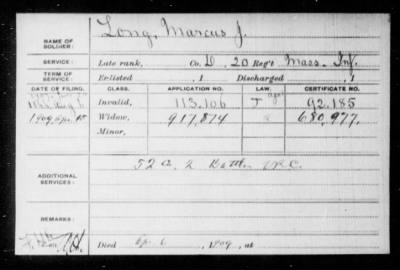 NAME OF SOLDIER: Long, Marcus J.
SERVICE: Late rank, Co. D, 20 Reg't Mass. Inf.
TERM OF SERVICE: Enlisted , 1 Discharged , 1
DATE OF FILING. CLASS. APPLICATION NO. LAW. CERTIFICATE NO.
Aug Invalid, 113.106 92.185
1909, Apr. Widow, 917,874 680,977.
Minor,
ADDITIONAL SERVICES: 52 Co. 2 Battn V.R.C.
REMARKS:
Died Apr. 6, 1909, at